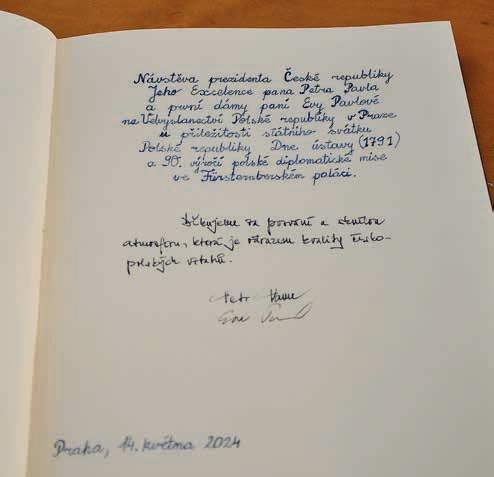 Návštěva prezidenta České republiky
Jeho Excelence pana Petra Pavla
a první dámy paní Evy Pavlové
na Velvyslanectví Polské republiky v Praze
u příležitosti státního svátku
Polské republiky Dne ústavy (1791)
a 90. výročí polské diplomatické mise
ve Fürstenberském paláci.
Děkujeme za pozvání a skvělou
atmosféru, která je výrazem kvality česko-
polských vztahů.
Petr
Eva
Praha, 14. května 2024